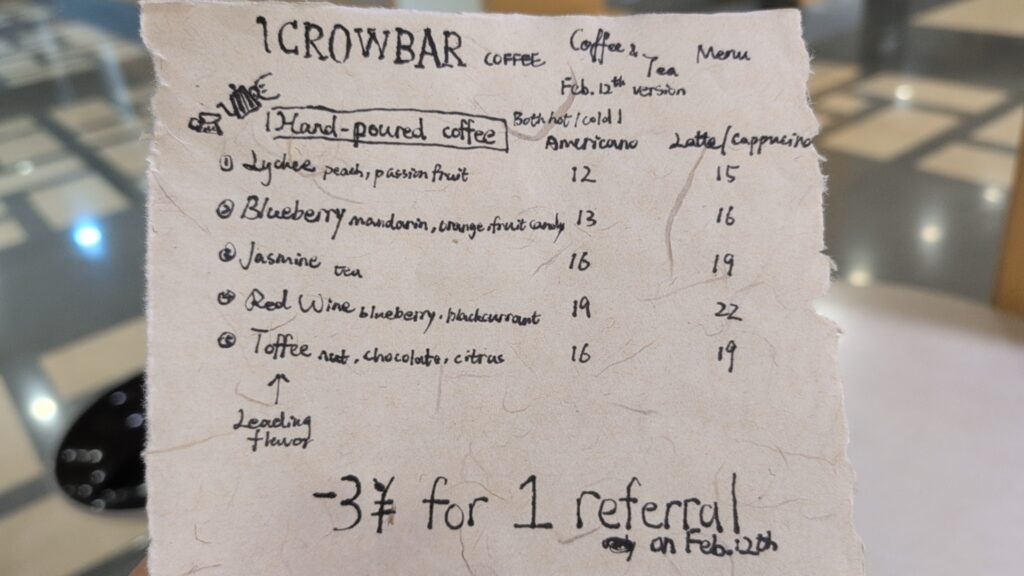 1CROWBAR COFFEE Coffee & Tea Menu
Feb. 12th version
1 Hand-poured coffee Both hot / cold !
Americano Latte/Cappucino
① Lychee peach, passion fruit 12 15
② Blueberry mandarin, orange, fruit candy 13 16
③ Jasmine tea 16 19
④ Red Wine blueberry, blackcurrant 19 22
⑤ Toffee nut, chocolate, citrus 16 19
↑
Leading
flavor
-3¥ for 1 referral
on Feb. 12th